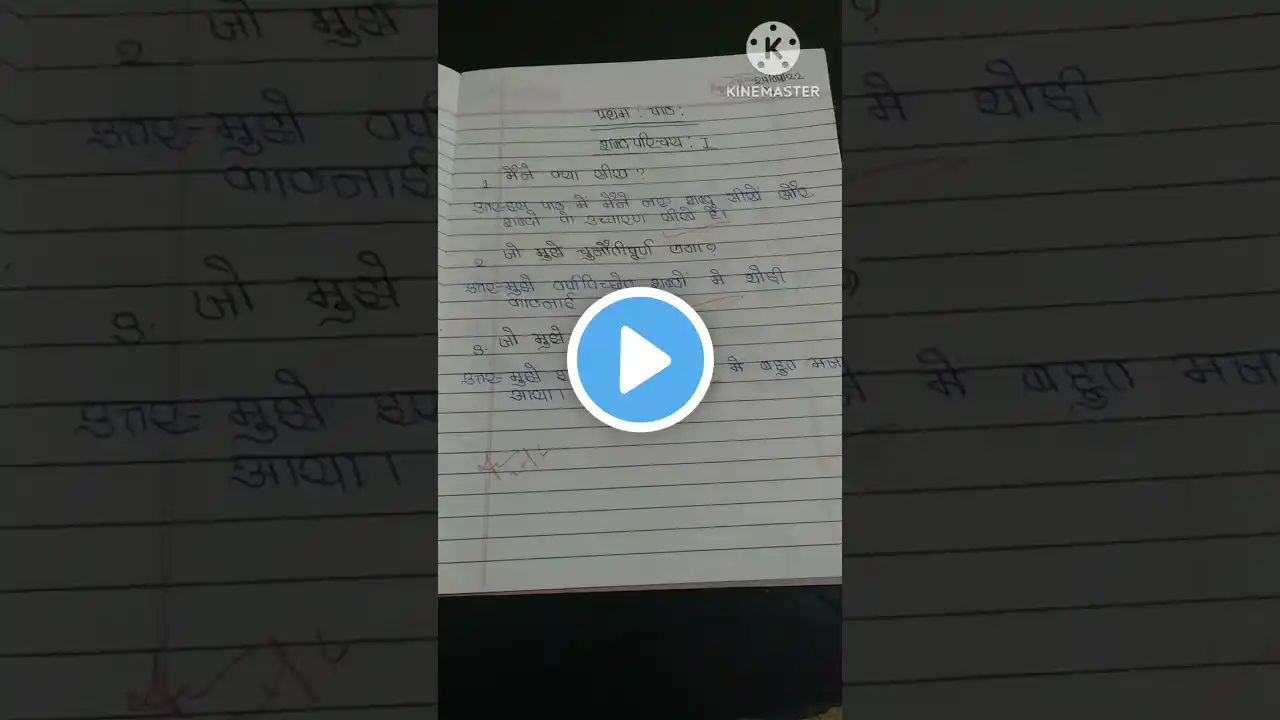 KINEMASTER
प्रथम : पाठ:
शब्द परिचय : I
1. मैंने क्या सीखा ?
उत्तर- इस पाठ में मैंने नए शब्द सीखे और
शब्दों के उच्चारण सीखे हैं।
2. जो मुझे चुनौतीपूर्ण लगा?
उत्तर- मुझे वर्णविच्छेद शब्दों में थोड़ी
कठिनाई
3. जो मुझे
उत्तर- मुझे में बहुत मज
आया।